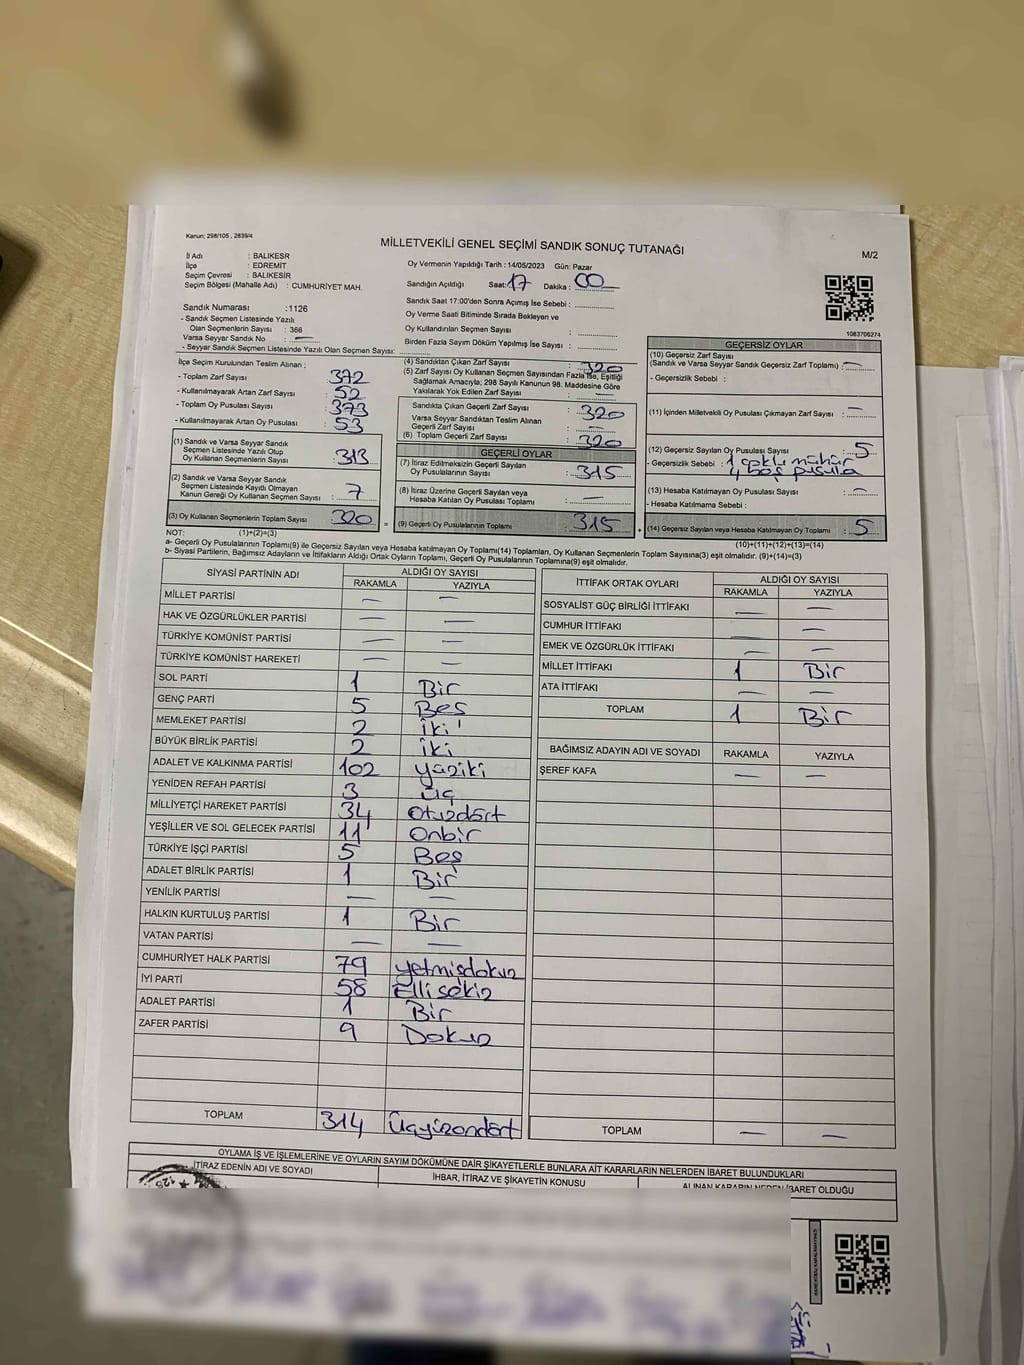 Kanun; 298/105 , 2839/4
MİLLETVEKİLİ GENEL SEÇİMİ SANDIK SONUÇ TUTANAĞI
M/2
İl Adı : BALIKESR
İlçe : EDREMIT
Seçim Çevresi : BALIKESİR
Seçim Bölgesi (Mahalle Adı) : CUMHURİYET MAH.
Oy Vermenin Yapıldığı Tarih : 14/05/2023 Gün: Pazar
Sandığın Açıldığı Saat: 17 Dakika : 00
Sandık Saat 17:00'den Sonra Açımış İse Sebebi :
Oy Verme Saati Bitiminde Sırada Bekleyen ve
Oy Kullandırılan Seçmen Sayısı :
Birden Fazla Sayım Döküm Yapılmış İse Sayısı :
1083706274
Sandık Numarası :1126
- Sandık Seçmen Listesinde Yazılı
Olan Seçmenlerin Sayısı : 366
Varsa Seyyar Sandık No :
- Seyyar Sandık Seçmen Listesinde Yazılı Olan Seçmen Sayısı:
İlçe Seçim Kurulundan Teslim Alınan ;
- Toplam Zarf Sayısı : 372
- Kullanılmayarak Artan Zarf Sayısı : 52
- Toplam Oy Pusulası Sayısı : 373
- Kullanılmayarak Artan Oy Pusulası : 53
(1) Sandık ve Varsa Seyyar Sandık
Seçmen Listesinde Yazılı Olup
Oy Kullanan Seçmenlerin Sayısı : 313
(2) Sandık ve Varsa Seyyar Sandık
Seçmen Listesinde Kayıtlı Olmayan
Kanun Gereği Oy Kullanan Seçmen Sayısı : 7
(3) Oy Kullanan Seçmenlerin Toplam Sayısı 320
(4) Sandıktan Çıkan Zarf Sayısı : 320
(5) Zarf Sayısı Oy Kullanan Seçmen Sayısından Fazla İse, Eşitliği
Sağlamak Amacıyla; 298 Sayılı Kanunun 98. Maddesine Göre
Yakılarak Yok Edilen Zarf Sayısı : —
Sandıkta Çıkan Geçerli Zarf Sayısı : 320
Varsa Seyyar Sandıktan Teslim Alınan
Geçerli Zarf Sayısı : —
(6) Toplam Geçerli Zarf Sayısı : 320
GEÇERLİ OYLAR
(7) İtiraz Edilmeksizin Geçerli Sayılan
Oy Pusulalarının Sayısı : 315
(8) İtiraz Üzerine Geçerli Sayılan veya
Hesaba Katılan Oy Pusulası Toplamı : —
= (9) Geçerli Oy Pusulalarının Toplamı : 315
GEÇERSİZ OYLAR
(10) Geçersiz Zarf Sayısı
(Sandık ve Varsa Seyyar Sandık Geçersiz Zarf Toplamı) : —
- Geçersizlik Sebebi :
(11) İçinden Milletvekili Oy Pusulası Çıkmayan Zarf Sayısı : —
(12) Geçersiz Sayılan Oy Pusulası Sayısı : 5
- Geçersizlik Sebebi : 1 çoklu mühür
4 boş pusula
(13) Hesaba Katılmayan Oy Pusulası Sayısı : —
- Hesaba Katılmama Sebebi :
+ (14) Geçersiz Sayılan veya Hesaba Katılmayan Oy Toplamı : 5
NOT: (1)+(2)=(3)
(10)+(11)+(12)+(13)=(14)
a- Geçerli Oy Pusulalarının Toplamı(9) ile Geçersiz Sayılan veya Hesaba katılmayan Oy Toplamı(14) Toplamları, Oy Kullanan Seçmenlerin Toplam Sayısına(3) eşit olmalıdır. (9)+(14)=(3)
b- Siyasi Partilerin, Bağımsız Adayların ve İttifakların Aldığı Ortak Oyların Toplamı, Geçerli Oy Pusulalarının Toplamına(9) eşit olmalıdır.
SİYASİ PARTİNİN ADI ALDIĞI OY SAYISI
RAKAMLA YAZIYLA
MİLLET PARTİSİ — —
HAK VE ÖZGÜRLÜKLER PARTİSİ — —
TÜRKİYE KOMÜNİST PARTİSİ — —
TÜRKİYE KOMÜNİST HAREKETİ — —
SOL PARTİ 1 Bir
GENÇ PARTİ 5 Beş
MEMLEKET PARTİSİ 2 iki
BÜYÜK BİRLİK PARTİSİ 2 iki
ADALET VE KALKINMA PARTİSİ 102 yüziki
YENİDEN REFAH PARTİSİ 3 üç
MİLLİYETÇİ HAREKET PARTİSİ 34 otuzdört
YEŞİLLER VE SOL GELECEK PARTİSİ 11 onbir
TÜRKİYE İŞÇİ PARTİSİ 5 Beş
ADALET BİRLİK PARTİSİ 1 Bir
YENİLİK PARTİSİ — —
HALKIN KURTULUŞ PARTİSİ 1 Bir
VATAN PARTİSİ — —
CUMHURİYET HALK PARTİSİ 79 yetmişdokuz
İYİ PARTİ 58 Ellisekiz
ADALET PARTİSİ 1 Bir
ZAFER PARTİSİ 9 Dokuz
TOPLAM 314 Üçyüzondört
İTTİFAK ORTAK OYLARI ALDIĞI OY SAYISI
RAKAMLA YAZIYLA
SOSYALİST GÜÇ BİRLİĞİ İTTİFAKI — —
CUMHUR İTTİFAKI — —
EMEK VE ÖZGÜRLÜK İTTİFAKI — —
MİLLET İTTİFAKI 1 Bir
ATA İTTİFAKI — —
TOPLAM 1 Bir
BAĞIMSIZ ADAYIN ADI VE SOYADI RAKAMLA YAZIYLA
ŞEREF KAFA — —
TOPLAM — —
OYLAMA İŞ VE İŞLEMLERİNE VE OYLARIN SAYIM DÖKÜMÜNE DAİR ŞİKAYETLERLE BUNLARA AİT KARARLARIN NELERDEN İBARET BULUNDUKLARI
İTİRAZ EDENİN ADI VE SOYADI
İHBAR, İTİRAZ VE ŞİKAYETİN KONUSU
ALINAN KARARIN NEDEN İBARET OLDUĞU